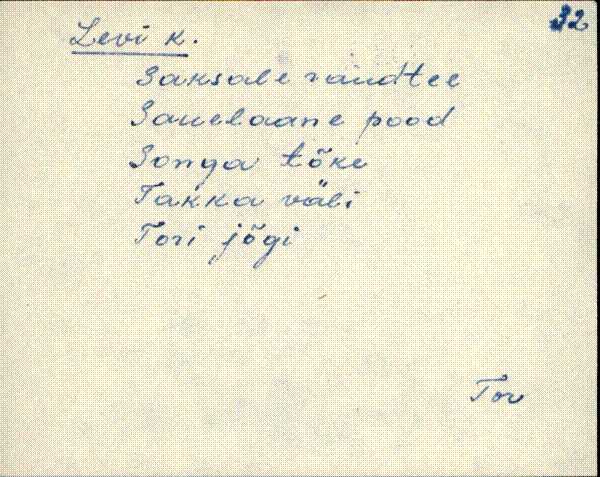 32
Levi k.
Saksale raudtee
Sauelaane pood
Songa tõke
Takka väli
Tori jõgi
Tor